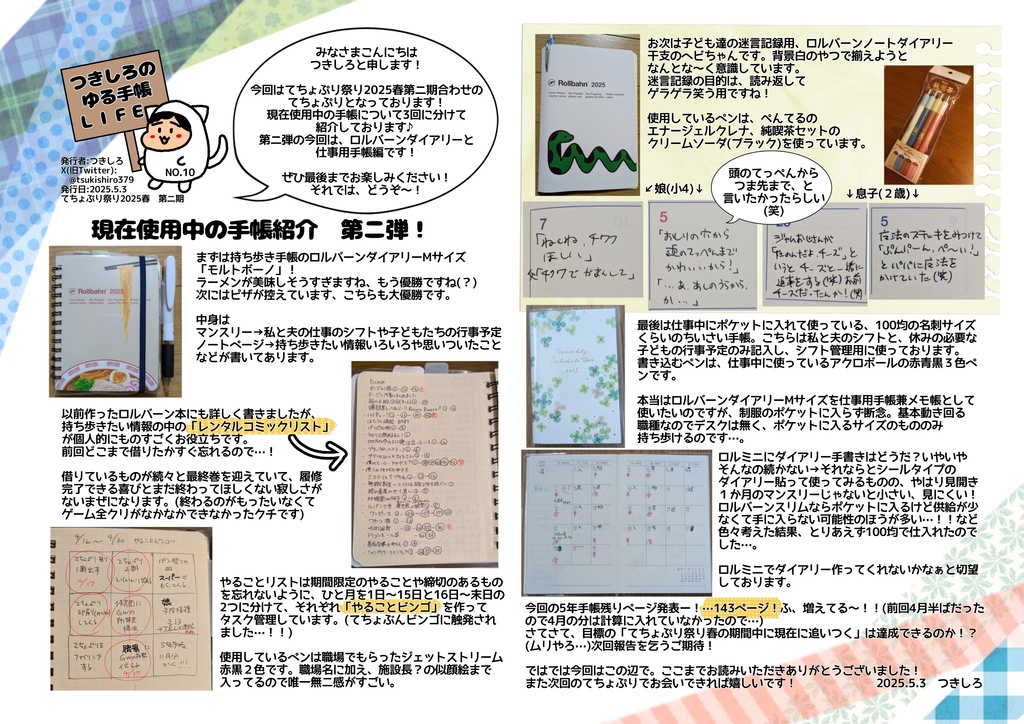 つきしろの
ゆる手帳
LIFE
NO.10
発行者:つきしろ
X(旧Twitter):
@tsukishiro379
発行日:2025.5.3
てちょぷり祭り2025春 第二期
みなさまこんにちは
つきしろと申します！
今回はてちょぷり祭り2025春第二期合わせの
てちょぷりとなっております！
現在使用中の手帳について3回に分けて
紹介しております♪
第二弾の今回は、ロルバーンダイアリーと
仕事用手帳編です！
ぜひ最後までお楽しみください！
それでは、どうぞ～！
現在使用中の手帳紹介 第二弾！
Rollbahn 2025
まずは持ち歩き手帳のロルバーンダイアリーMサイズ
「モルトボーノ」！
ラーメンが美味しそうすぎますね、もう優勝ですね(？)
次にはピザが控えています、こちらも大優勝です。
中身は
マンスリー→私と夫の仕事のシフトや子どもたちの行事予定
ノートページ→持ち歩きたい情報いろいろや思いついたこと
などが書いてあります。
以前作ったロルバーン本にも詳しく書きましたが、
持ち歩きたい情報の中の「レンタルコミックリスト」
が個人的にものすごくお役立ちです。
前回どこまで借りたかすぐ忘れるので…！
借りているものが続々と最終巻を迎えていて、履修
完了できる喜びとまだ終わってほしくない寂しさが
ないまぜになります。(終わるのがもったいなくて
ゲーム全クリがなかなかできなかったクチです)
9/16 ～ 9/30 やることビンゴ
やることリストは期間限定のやることや締切のあるもの
を忘れないように、ひと月を1日～15日と16日～末日の
2つに分けて、それぞれ「やることビンゴ」を作って
タスク管理しています。(てちょぶんビンゴに触発され
ました…！！)
使用しているペンは職場でもらったジェットストリーム
赤黒２色です。職場名に加え、施設長？の似顔絵まで
入ってるので唯一無二感がすごい。
Rollbahn 2025
お次は子ども達の迷言記録用、ロルバーンノートダイアリー
干支のヘビちゃんです。背景白のやつで揃えようと
なんとな～く意識しています。
迷言記録の目的は、読み返して
ゲラゲラ笑う用ですね！
使用しているペンは、ぺんてるの
エナージェルクレナ、純喫茶セットの
クリームソーダ(ブラック)を使っています。
頭のてっぺんから
つま先まで、と
言いたかったらしい
(笑)
↙娘(小4)↓
↓息子(２歳)→
7
「ねぇね、チクワ
ほしい」
5
「おしりの穴から
頭のてっぺんまで
かわいいから！」
「…あ、あしのうらから、
か…」
ジャムおじさんが
「たのんだよ、チーズ」と
いうと チーズと一緒に
返事をする(笑) お前
チーズだったんか！(笑)
5
魔法のステッキをみつけて
「ぷんぷーん、ぺーい！」
とパパに魔法を
かけていた(笑)
最後は仕事中にポケットに入れて使っている、100均の名刺サイズ
くらいのちいさい手帳。こちらは私と夫のシフトと、休みの必要な
子どもの行事予定のみ記入し、シフト管理用に使っております。
書き込むペンは、仕事中に使っているアクロボールの赤青黒３色ペ
ンです。
本当はロルバーンダイアリーMサイズを仕事用手帳兼メモ帳として
使いたいのですが、制服のポケットに入らず断念。基本動き回る
職種なのでデスクは無く、ポケットに入るサイズのもののみ
持ち歩けるのです…。
ロルミニにダイアリー手書きはどうだ？いやいや
そんなの続かない→それならとシールタイプの
ダイアリー貼って使ってみるものの、やはり見開き
１か月のマンスリーじゃないと小さい、見にくい！
ロルバーンスリムならポケットに入るけど供給が少
なくて手に入らない可能性のほうが多い…！！など
色々考えた結果、とりあえず100均で仕入れたので
した…。
ロルミニでダイアリー作ってくれないかなぁと切望
しております。
今回の5年手帳残りページ発表ー！…143ページ！ふ、増えてる～！！(前回4月半ばだった
ので4月の分は計算に入れていなかったので…)
さてさて、目標の「てちょぷり祭り春の期間中に現在に追いつく」は達成できるのか！？
(ムリやろ…)次回報告を乞うご期待！
ではでは今回はこの辺で。ここまでお読みいただきありがとうございました！
また次回のてちょぷりでお会いできれば嬉しいです！ 2025.5.3 つきしろ